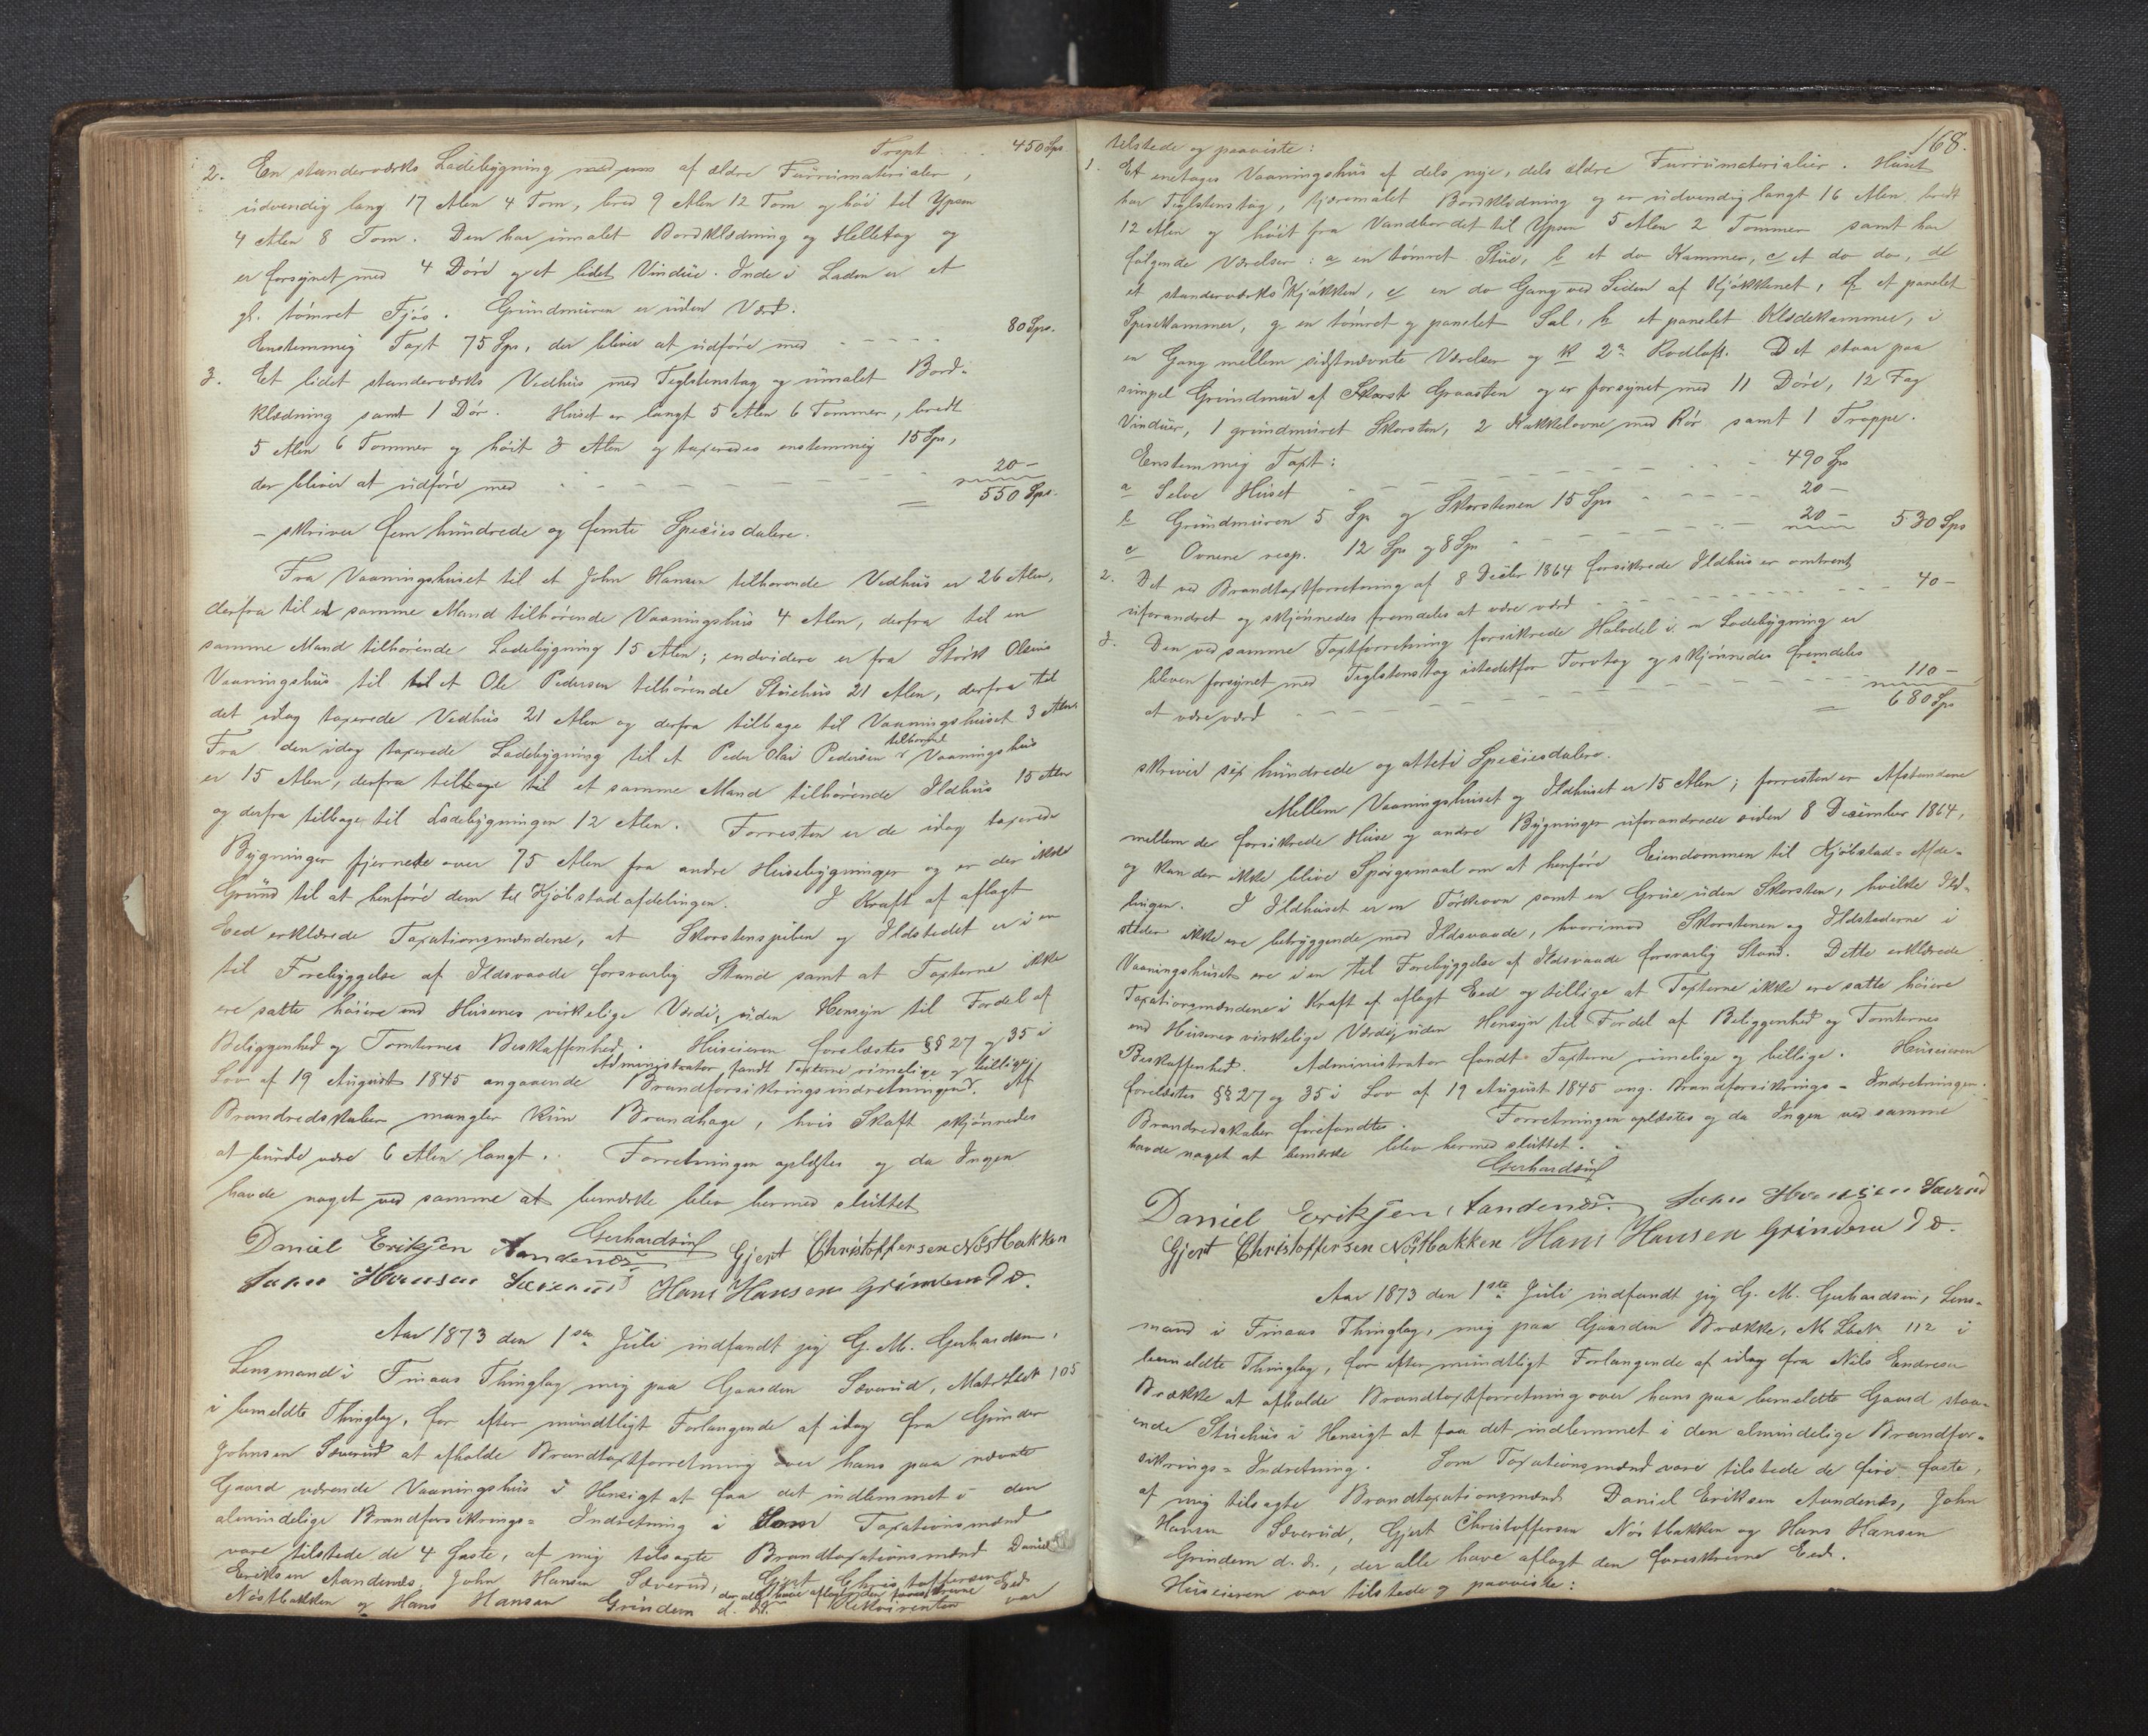 Trspt 450 Sps.
2. En standerværks Ladebygning med um af ældre Furrumaterialer,
udvendig lang 17 Alen 4 Tom, bred 9 Alen 12 Tom og höi til Ypsen
4 Alen 8 Tom. Den har umalet Bordklædning og Helletag og
er forsynet med 4 Döre og et lidet Vindue. Inde i Laden er et
gl. tömret Fjös. Grundmuren er uden Værd.
Enstemmig Taxt 75 Sps, der bliver at udföre med 80 Sps.
3. Et lidet standerværks Vedhus med Teglstenstag og umalet Bord-
klædning samt 1 Dör. Huset er langt 5 Alen 6 Tommer, bredt
5 Alen 6 Tommer og höit 3 Alen og taxeredes enstemmig 15 Sps,
der bliver at udföre med 20 -
= 550 Sps.
- skriver fem hundrede og femte Speciesdalere.
Fra Vaaningshuset til et John Hansen tilhörende Vedhus er 26 Alen,
derfra til et samme Mand tilhörende Vaaningshus 4 Alen, derfra til en
samme Mand tilhörende Ladebygning 15 Alen; endvidere er fra Störk Olsens
Vaaningshus til til et Ole Pedersen tilhörende Stuehus 21 Alen, derfra til
det idag taxerede Vedhus 21 Alen og derfra tilbage til Vaaningshuset 3 Alen.
Fra den idag taxerede Ladebygning til et Peder Olai Pedersen tilhörende Vaaningshus
er 15 Alen, derfra tilbage til et samme Mand tilhörende Ildhus 15 Alen
og derfra tilbage til Ladebygningen 12 Alen. Forresten er de idag taxerede
Bygninger fjernede over 75 Alen fra andre Husebygninger og er der ikke
Grund til at henföre dem til Kjöbstadafdelingen. I Kraft af aflagt
Eed erklærede Taxationsmændene, at Skorstenspiben og Ildstedet er i en
til Forebyggelse af Ildsvaade forsvarlig Stand samt at Taxterne ikke
ere satte höiere end Husenes virkelige Værdi, uden Hensyn til Fordel af
Beliggenhed og Tomternes Beskaffenhed. Huseieren forelæstes §§ 27 og 35 i
Lov af 19 August 1845 angaaende Brandforsikringsindretningen. Administrator fandt Taxterne rimelige og billige. Af
Brandredskaber mangler kun Brandhage, hvis Skaft skjönnedes
at burde være 6 Alen langt. Forretningen oplæstes og da Ingen
havde noget ved samme at bemærke blev hermed sluttet
Gerhardsen
Daniel Eriksen Aandenes Gjert Christoffersen Nöstbakken
John Hansen Sæverud Hans Hansen Grindem d. æ.
Aar 1873 den 1ste Juli indfandt jeg G. M. Gerhardsen,
Lensmand i Finaas Thinglag mig paa Gaarden Sæverud, Matr Löbe 105
i bemeldte Thinglag, for efter mundtligt Forlangende af idag fra Gunder
Johnsen Sæverud at afholde Brandtaxtforretning over hans paa nævnte
Gaard værende Vaaningshus i Hensigt at faa det indlemmet i den
almindelige Brandforsikrings- Indretning i Som Taxationsmænd
vare tilstede de 4 faste, af mig tilsagte Brandtaxationsmænd Daniel
Eriksen Aandenes, John Hansen Sæverud, Gjert Christoffersen
Nöstbakken og Hans Hansen Grindem d. æ. der alle have aflagt den foreskrevne Eed. Rekvirenten var
168.
tilstede og paaviste:
1. Et enetages Vaaningshus af dels nye, dels ældre Furrumaterialier. Huset
har Teglstenstag, tjæremalet Bordklædning og er udvendig langt 16 Alen bredt
12 Alen og höit fra Vandbordet til Ypsen 5 Alen 2 Tommer samt har
fölgende Værelser: a en tömret Stue, b et do Kammer, c et do do, d
et standerværks Kjökken, e en do Gang ved Siden af Kjökkenet, f et panelet
Spisekammer, g en tömret og panelet Sal, h et panelet Klædekammer, i
en Gang mellem sidstnævnte Værelser og k 2de Rodloft. Det staar paa
simpel Grundmur af Skarst Graasten og er forsynet med 11 Döre, 12 Fag
Vinduer, 1 grundmuret Skorsten, 2 Kakkelovne med Rör samt 1 Trappe.
Enstemmig Taxt:
a Selve Huset 490 Sps
b Grundmuren 5 Sp og Skorstenen 15 Sps 20 -
c Ovnene resp. 12 Sps og 8 Sps 20 - 530 Sps
2. Det ved Brandtaxtforretning af 8 Decbr 1864 forsikrede Ildhus er omtrent
uforandret og skjönnedes fremdeles at være værd 40 -
3. Den ved samme Taxtforretning forsikrede Halvdel i en Ladebygning er
bleven forsynet med Teglstenstag istedetfor Torvtag og skjönnedes fremdeles
at være værd 110 -
= 680 Sps
skriver sex hundrede og otteti Speciesdalere.
Mellem Vaaningshuset og Ildhuset er 15 Alen; forresten er Afstandene
mellem de forsikrede Huse og andre Bygninger uforandrede siden 8 December 1864,
og kan der ikke blive Spörgsmaal om at henföre Eiendommen til Kjöbstad-Afde-
lingen. I Ildhuset er en Törkeovn samt en Grue uden Skorsten, hvilke Ild-
steder ikke ere betryggende mod Ildsvaade, hvorimod Skorstenen og Ildstederne i
Vaaningshuset ere i en til Forebyggelse af Ildsvaade forsvarlig Stand. Dette erklærede
Taxationsmændene i Kraft af aflagt Eed og tillige at Taxterne ikke ere satte höiere
end Husenes virkelige Værdi, uden Hensyn til Fordel af Beliggenhed og Tomternes
Beskaffenhed. Administrator fandt Taxterne rimelige og billige. Huseieren
forelæstes §§ 27 og 35 i Lov af 19 August 1845 ang. Brandforsikrings- Indretningen.
Brandredskaber forefandtes. Forretningen oplæstes og da Ingen ved samme
havde noget at bemærke blev hermed sluttet.
Gerhardsen
Daniel Eriksen Aandenes. John Hansen Sæverud
Gjert Christoffersen Nöstbakken Hans Hansen Grindem d æ.
Aar 1873 den 1ste Juli indfandt jeg G. M. Gerhardsen, Lens-
mand i Finaas Thinglag, mig paa Gaarden Brække, M Löbe 112 i
bemeldte Thinglag, for efter mundtligt Forlangende af idag fra Nils Endresen
Brække at afholde Brandtaxtforretning over hans paa bemeldte Gaard staa-
ende Stuehus i Hensigt at faa det indlemmet i den almindelige Brandfor-
sikrings- Indretning. Som Taxationsmænd vare tilstede de fire faste,
af mig tilsagte Brandtaxationsmænd Daniel Eriksen Aandenes, John
Hansen Sæverud, Gjert Christoffersen Nöstbakken og Hans Hansen
Grindem d. æ., der alle have aflagt den foreskrevne Eed.
Huseieren var tilstede og paaviste: